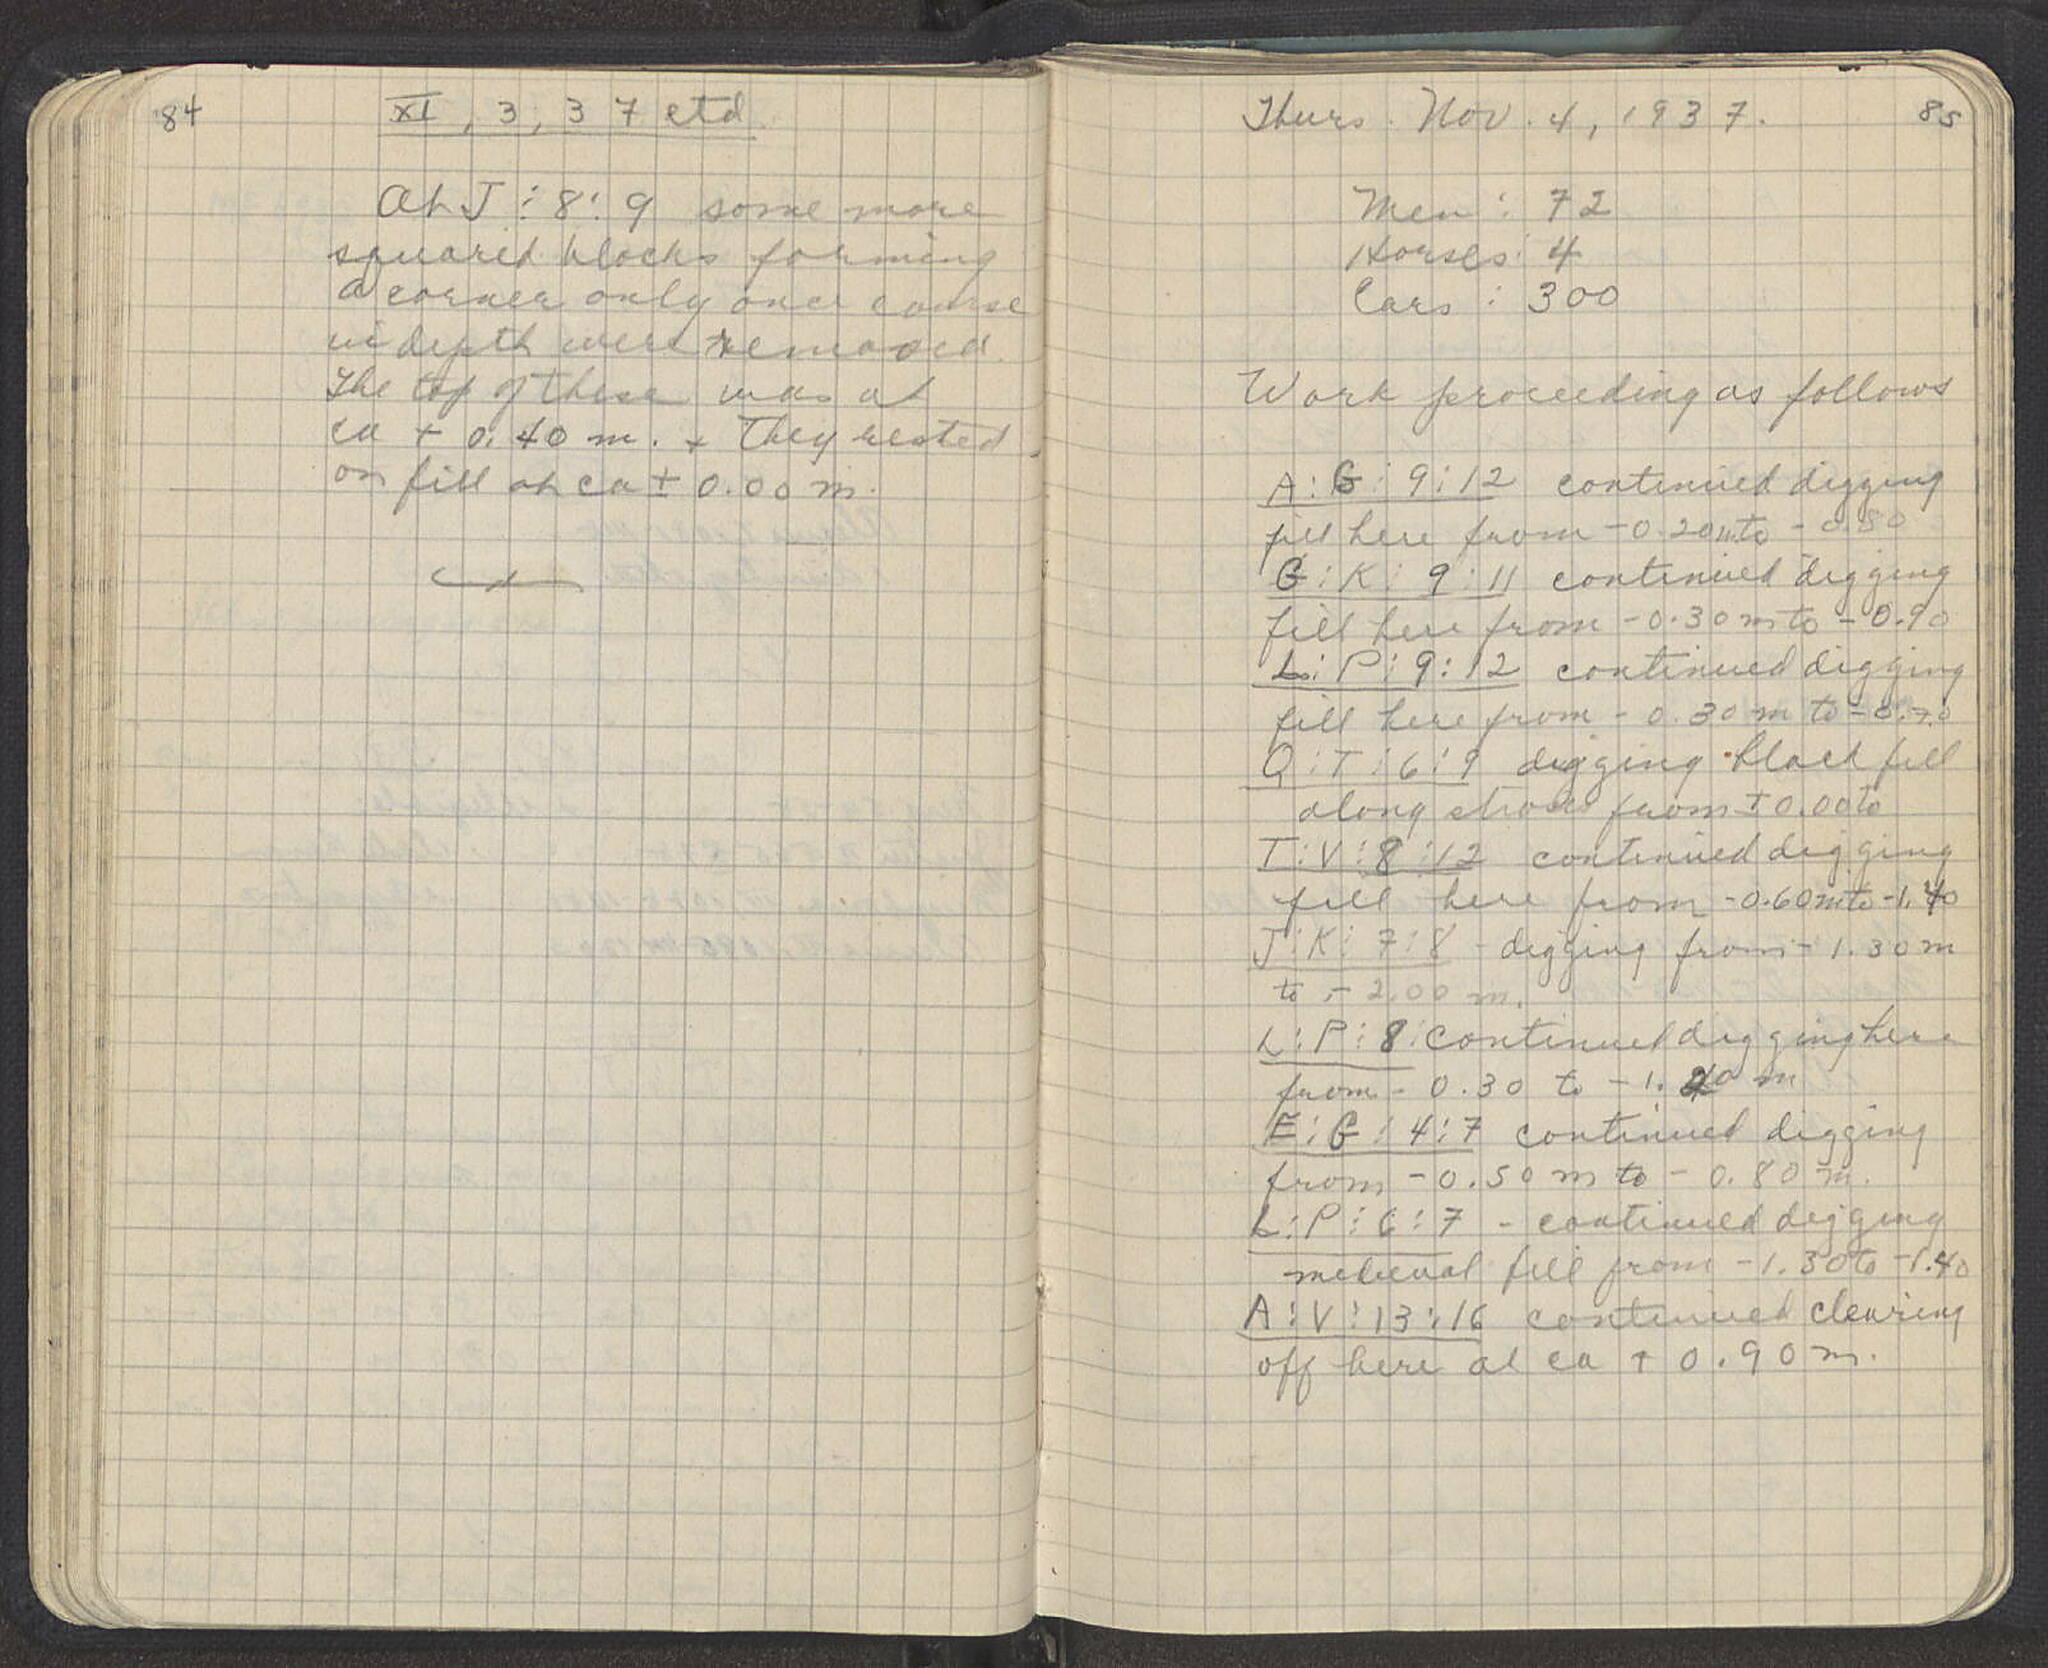 84
XI, 3, 37 ctd.
At J:8:9 some more
squared blocks forming
a corner only one course
in depth were removed.
The top of these was at
ca + 0.40 m. + they rested
on fill at ca ± 0.00 m.
Thurs. Nov. 4, 1937.
85
Men : 72
Horses : 4
Cars : 300
Work proceeding as follows
A:G:9:12 continued digging
fill here from -0.20m to -0.80
G:K:9:11 continued digging
fill here from -0.30m to -0.90
L:P:9:12 continued digging
fill here from -0.30 m to -0.70
Q:T:6:9 digging black fill
along from ± 0.00 to
T:V:8:12 continued digging
fill here from -0.60m to -1.40
J:K:7:8 - digging from - 1.30 m
to - 2.00 m.
L:P:8: continued digging here
from - 0.30 to - 1. m
E:G:4:7 continued digging
from - 0.50 m to - 0.80 m.
L:P:6:7 - continued digging
medieval fill from -1.30 to -1.40
A:V:13:16 continued clearing
off here at ca + 0.90 m.